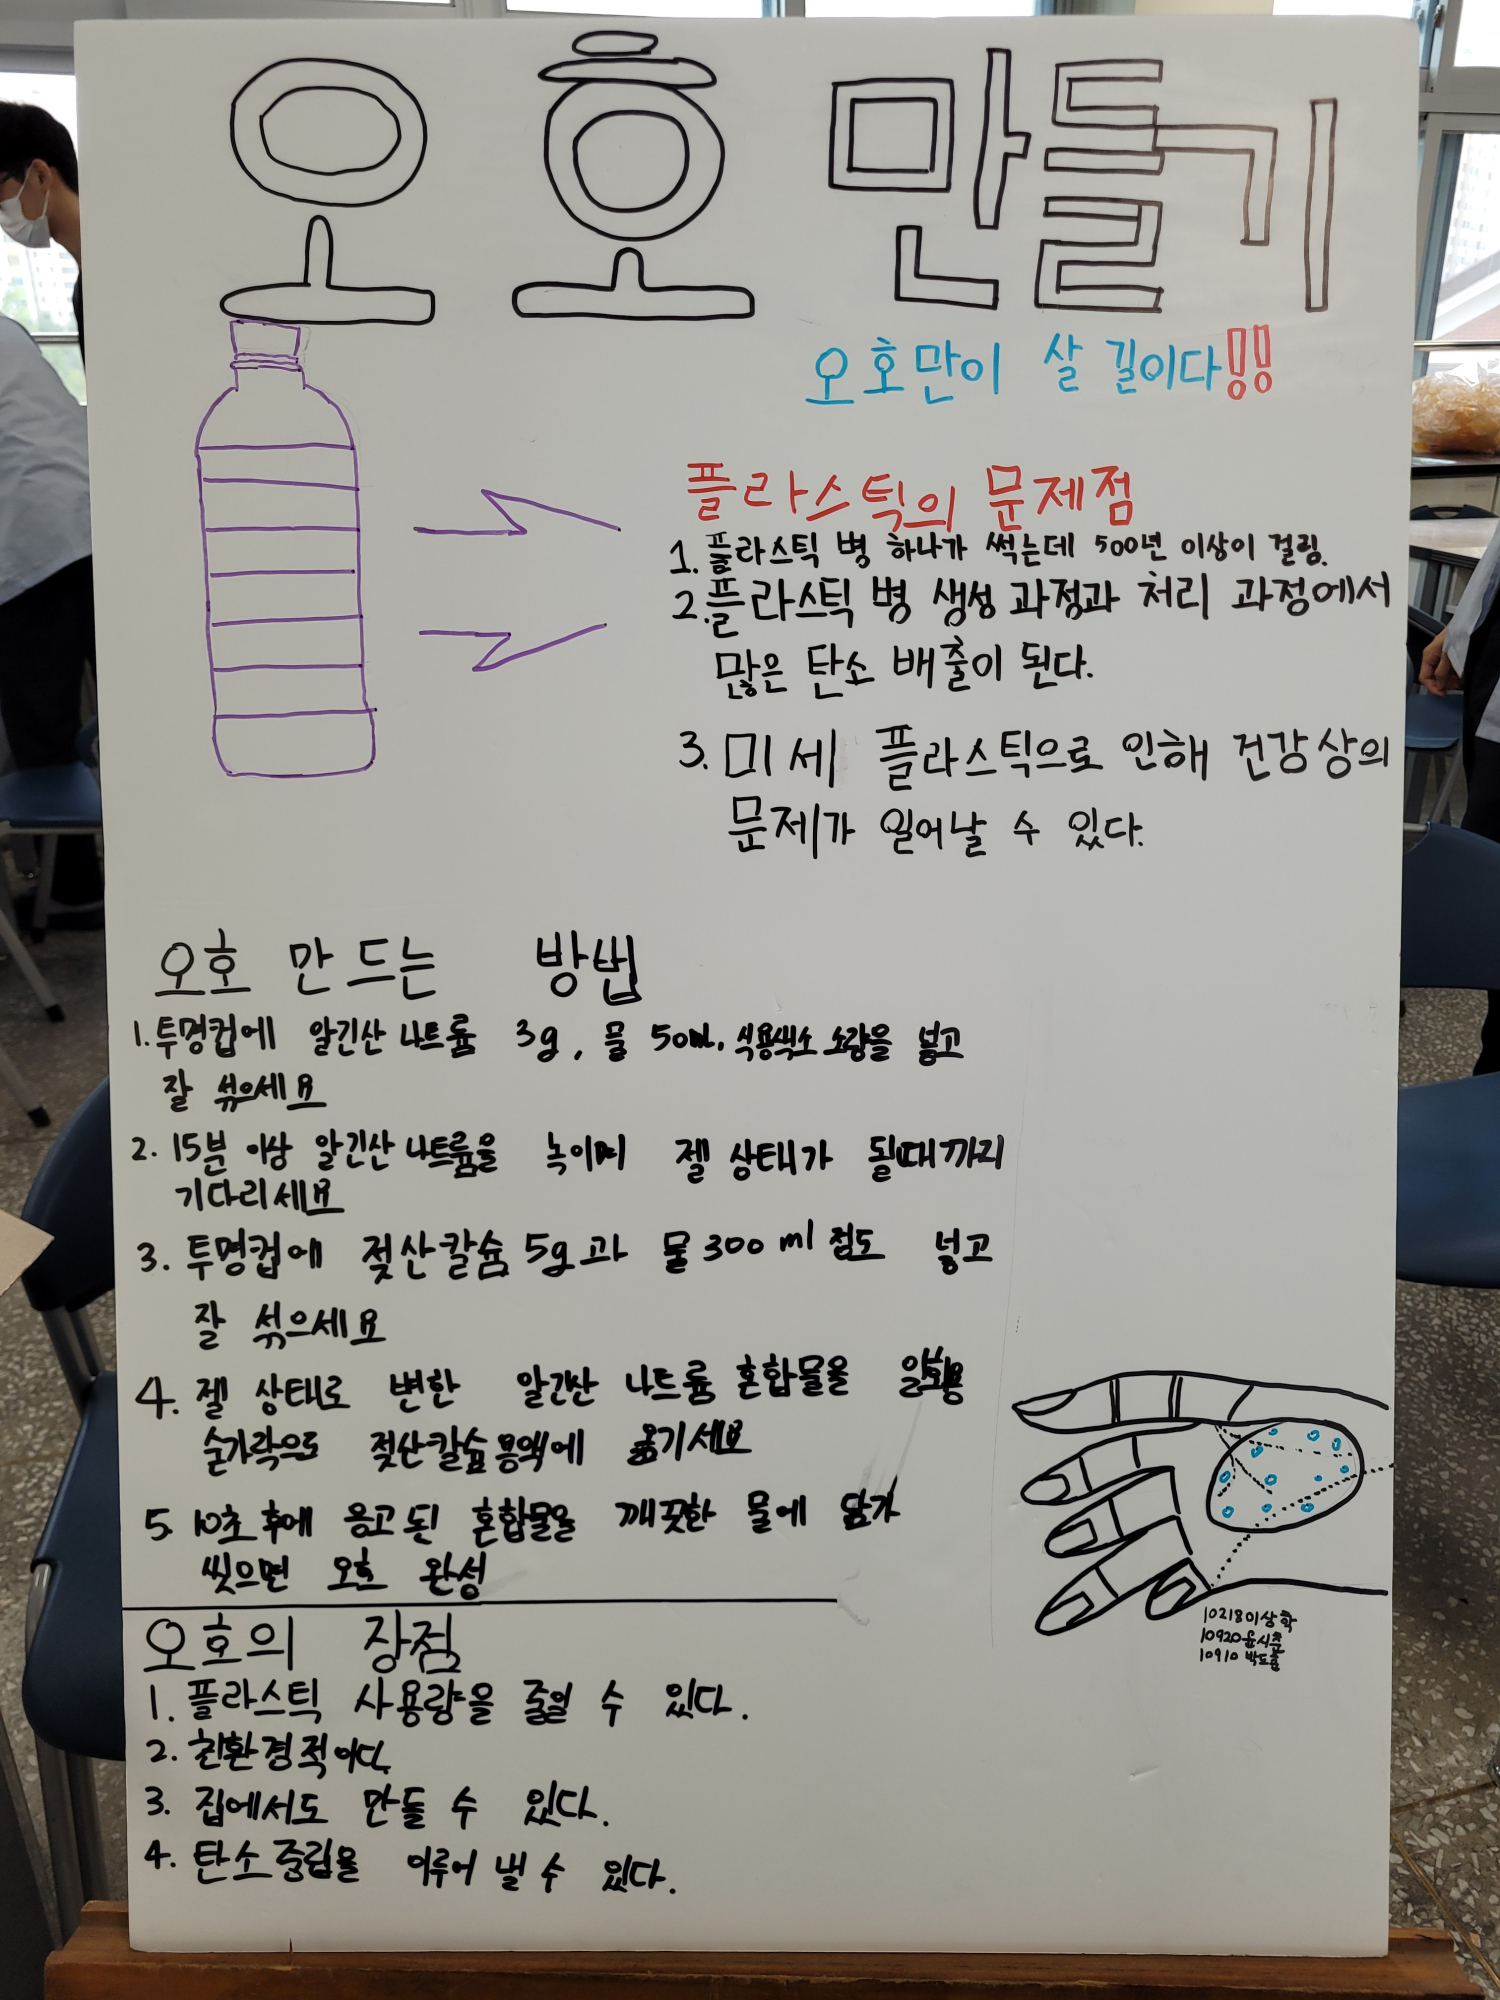 오호 만들기
오호만이 살 길이다!!
플라스틱의 문제점
1. 플라스틱 병 하나가 썩는데 500년 이상이 걸림.
2. 플라스틱 병 생성 과정과 처리 과정에서
많은 탄소 배출이 된다.
3. 미세 플라스틱으로 인해 건강상의
문제가 일어날 수 있다.
오호 만드는 방법
1. 투명컵에 알긴산 나트륨 3g, 물 50ml, 식용색소 소량을 넣고
잘 섞으세요
2. 15분 이상 알긴산 나트륨을 녹이며 젤 상태가 될때까지
기다리세요
3. 투명컵에 젖산칼슘 5g과 물 300ml 정도 넣고
잘 섞으세요
4. 젤 상태로 변한 알긴산 나트륨 혼합물을 일회용
숟가락으로 젖산칼슘용액에 옮기세요
5. 10초 후에 응고된 혼합물을 깨끗한 물에 담가
씻으면 오호 완성
오호의 장점
1. 플라스틱 사용량을 줄일 수 있다.
2. 친환경적이다.
3. 집에서도 만들 수 있다.
4. 탄소중립을 이루어 낼 수 있다.
10218 이상학
10920 윤시
10910 박도